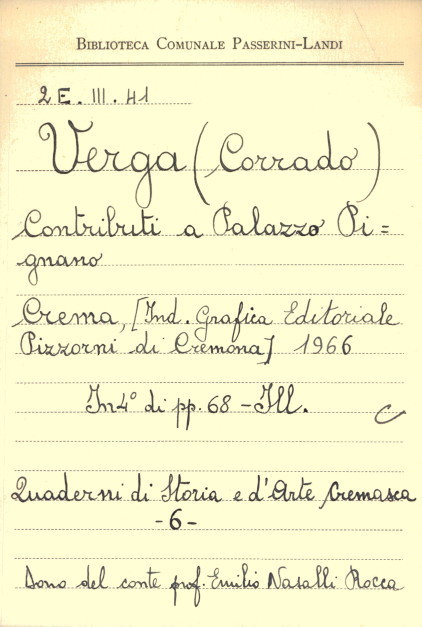 BIBLIOTECA COMUNALE PASSERINI-LANDI
2E. III. 41
Verga (Corrado)
Contributi a Palazzo Pi=
gnano
Crema, [Ind. Grafica Editoriale
Pizzorni di Cremona] 1966
In 4° di pp. 68 - Ill.
C
Quaderni di Storia e d'Arte Cremasca
- 6 -
Dono del conte prof. Emilio Nasalli Rocca